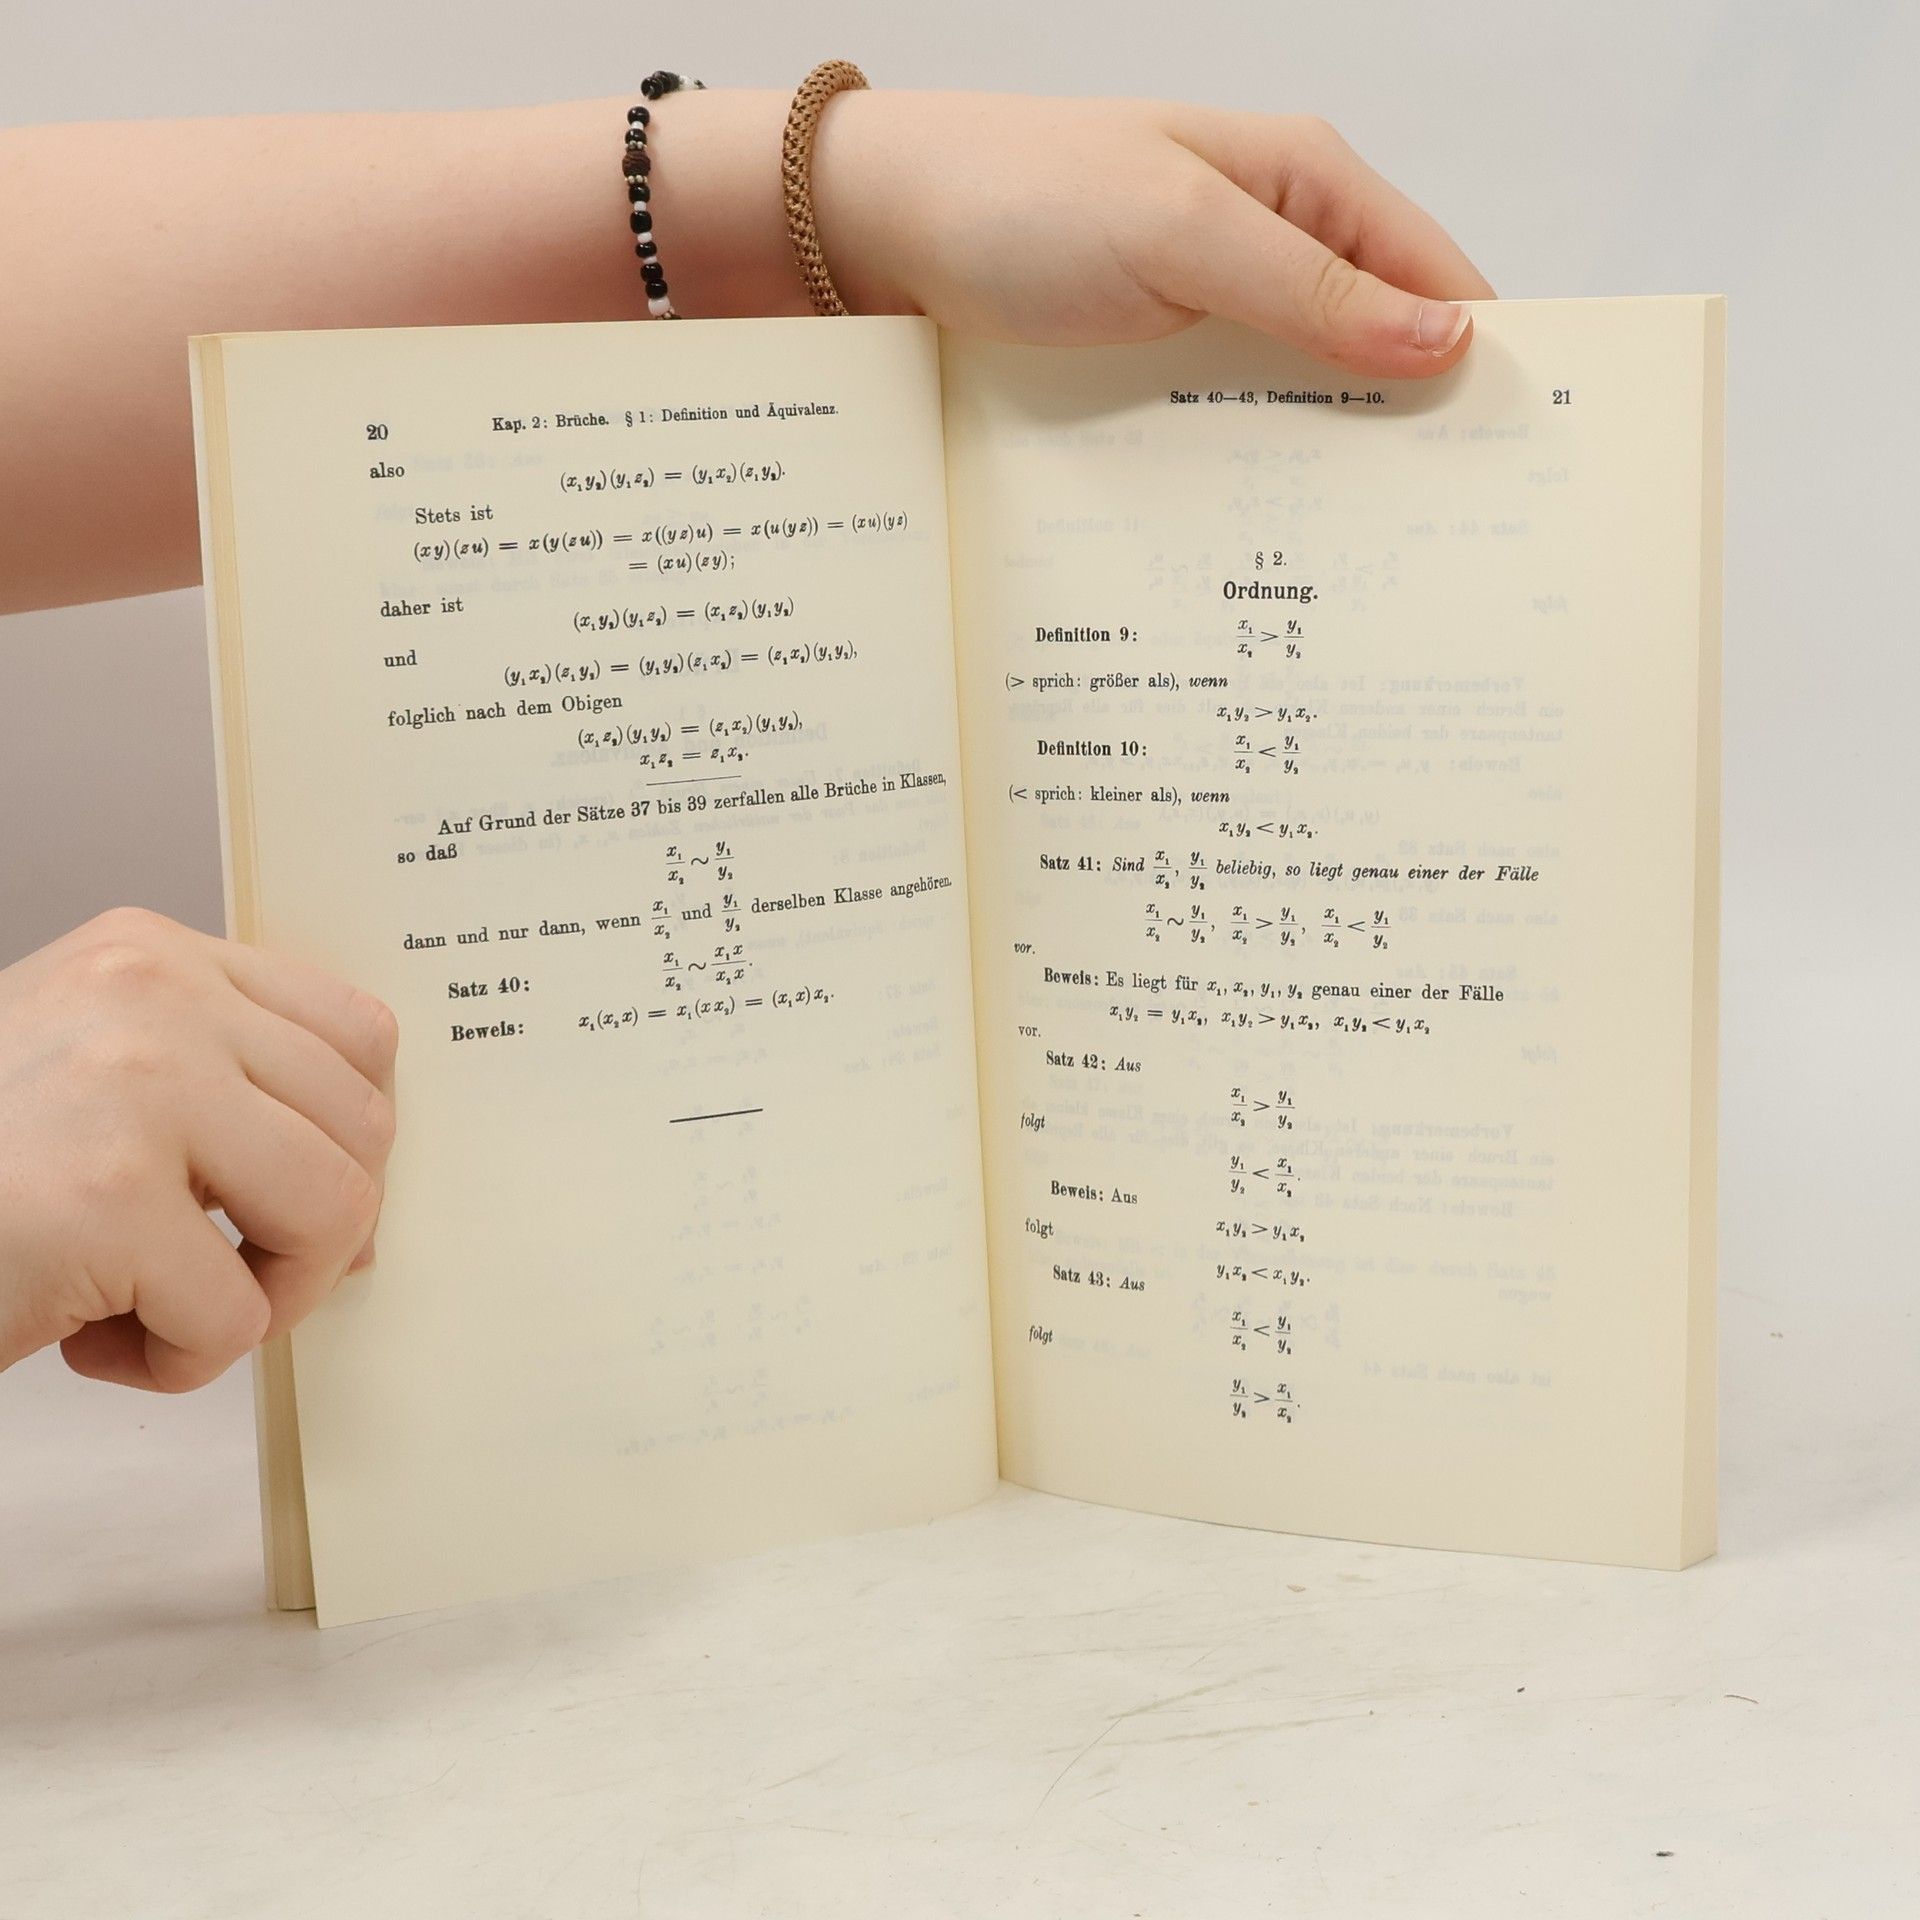 20 Kap. 2: Brüche. § 1: Definition und Äquivalenz.
also
(x₁y₂)(y₁z₂) = (y₁x₂)(z₁y₂).
Stets ist
(xy)(zu) = x(y(zu)) = x((yz)u) = x(u(yz)) = (xu)(yz)
= (xu)(zy);
daher ist
(x₁y₂)(y₁z₂) = (x₁z₂)(y₁y₂)
und
(y₁x₂)(z₁y₂) = (y₁y₂)(z₁x₂) = (z₁x₂)(y₁y₂),
folglich nach dem Obigen
(x₁z₂)(y₁y₂) = (z₁x₂)(y₁y₂),
x₁z₂ = z₁x₂.
Auf Grund der Sätze 37 bis 39 zerfallen alle Brüche in Klassen,
so daß
x₁/x₂ ~ y₁/y₂
dann und nur dann, wenn x₁/x₂ und y₁/y₂ derselben Klasse angehören.
Satz 40: x₁/x₂ ~ x₁x/x₂x.
Beweis: x₁(x₂x) = x₁(xx₂) = (x₁x)x₂.
Satz 40—43, Definition 9—10. 21
§ 2.
Ordnung.
Definition 9: x₁/x₂ > y₁/y₂
(> sprich: größer als), wenn
x₁y₂ > y₁x₂.
Definition 10: x₁/x₂ < y₁/y₂
(< sprich: kleiner als), wenn
x₁y₂ < y₁x₂.
Satz 41: Sind x₁/x₂, y₁/y₂ beliebig, so liegt genau einer der Fälle
x₁/x₂ ~ y₁/y₂, x₁/x₂ > y₁/y₂, x₁/x₂ < y₁/y₂
vor.
Beweis: Es liegt für x₁, x₂, y₁, y₂ genau einer der Fälle
x₁y₂ = y₁x₂, x₁y₂ > y₁x₂, x₁y₂ < y₁x₂
vor.
Satz 42: Aus
x₁/x₂ > y₁/y₂
folgt
y₁/y₂ < x₁/x₂.
Beweis: Aus
x₁y₂ > y₁x₂
folgt
y₁x₂ < x₁y₂.
Satz 43: Aus
x₁/x₂ < y₁/y₂
folgt
y₁/y₂ > x₁/x₂.